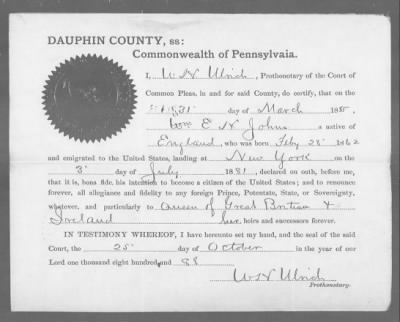 DAUPHIN COUNTY, ss:
Commonwealth of Pennsylvania.
I, W H Ulrich, Prothonotary of the Court of
Common Pleas, in and for said County, do certify, that on the
31 day of March 188
Wm E H Johns a native of
England, who was born Feby 28" 1862
and emigrated to the United States, landing at New York on the
3" day of July 1881, declared on oath, before me,
that it is, bona fide, his intention to become a citizen of the United States; and to renounce
forever, all allegiance and fidelity to any foreign Prince, Potentate, State, or Sovereignty,
whatever, and particularly to Queen of Great Britain &
Ireland her heirs and successors forever.
IN TESTIMONY WHEREOF, I have hereunto set my hand, and the seal of the said
Court, the 25" day of October in the year of our
Lord one thousand eight hundred, and 88
W H Ulrich
Prothonotary.